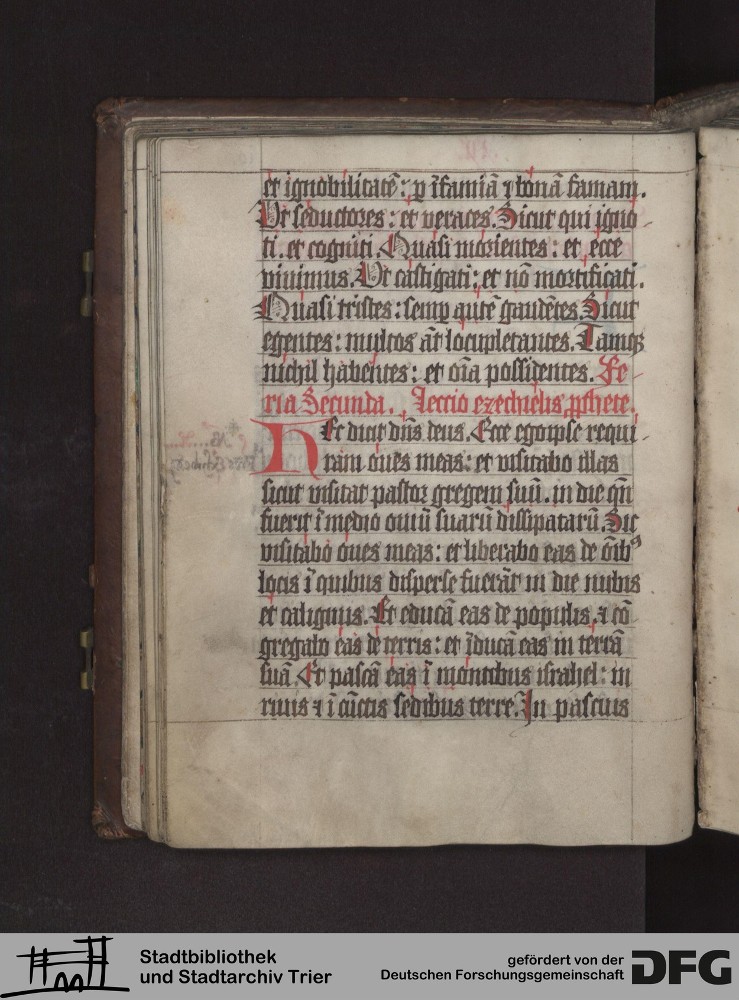 et ignobilitatē: ꝑ īfamiā ⁊ bonā famam.
Vt seductores: et veraces. Sicut qui igno
ti. et cogniti. Quasi morientes: et ecce
viuimus. Vt castigati: et nō mortificati.
Quasi tristes: semꝑ autē gaudētes. Sicut
egentes: multos āt locupletantes. Tamqꝫ
nichil habentes: et oīa possidentes. Fe-
ria Secunda. Leccio ezechielis ꝓphete.
Hec dicit dn̄s deus. Ecce egoipse requi
ram oues meas: et visitabo illas
sicut visitat pastor gregem suū. in die qn̄
fuerit ī medio ouiū suarū dissipatarū. Sic
visitabo oues meas: et liberabo eas de ōibꝰ
locis ī quibus disperse fuerāt in die nubis
et caliginis. Et educā eas de populis, ⁊ cō
gregabo eas de terris: et īducā eas in terrā
suā. Et pascā eas ī montibus israhel: in
riuis ⁊ ī cūctis sedibus terre. In pascuis
Stadtbibliothek
und Stadtarchiv Trier
gefördert von der
Deutschen Forschungsgemeinschaft
DFG